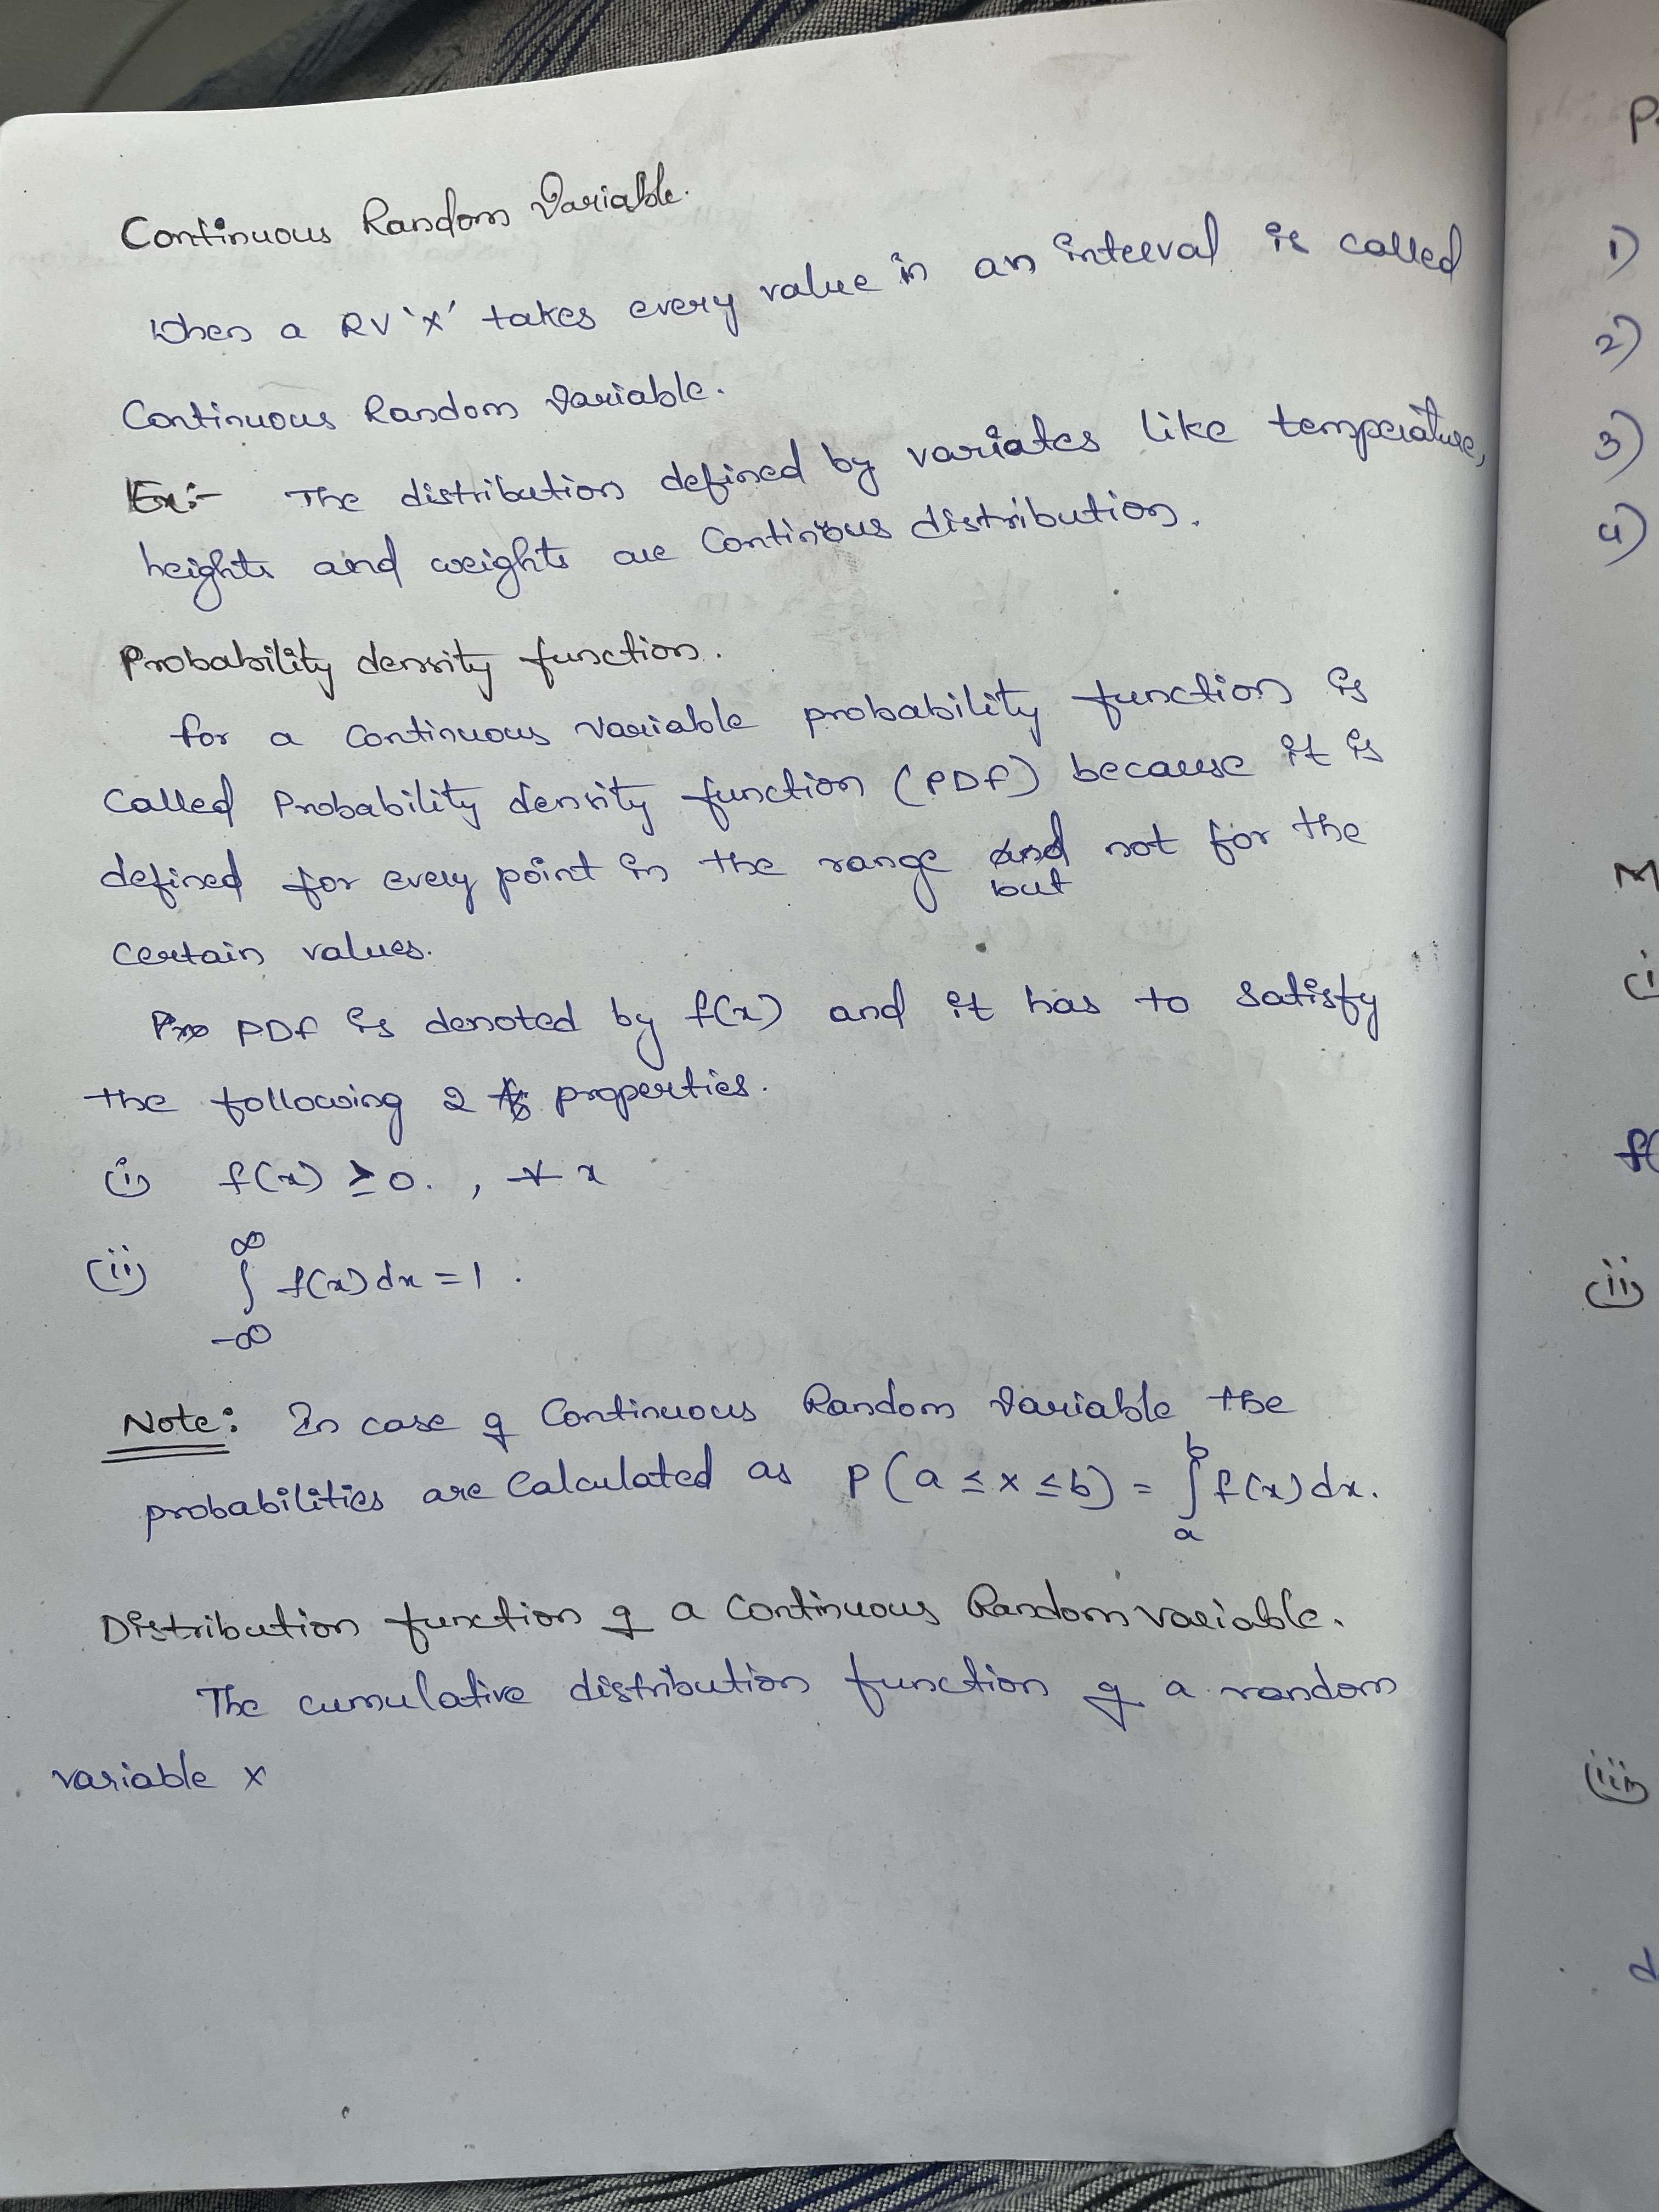 Continuous Random Variable.
When a RV 'X' takes every value in an interval is called
Continuous Random Variable.
Ex:- The distribution defined by variates like temperature,
heights and weights are Continous distribution.
Probability density function.
for a continuous variable probability function is
called Probability density function (PDF) because it is
defined for every point in the range and not for the
but
certain values.
Pro PDF is denoted by f(x) and it has to satisfy
the following 2 properties.
(i) f(x) ≥ 0. , ∀ x
(ii) ∫_{-∞}^{∞} f(x) dx = 1.
Note: In case of Continuous Random Variable the
probabilities are Calculated as P(a ≤ x ≤ b) = ∫_{a}^{b} f(x) dx.
Distribution function of a continuous Random variable.
The cumulative distribution function of a random
variable X
P
1)
2)
3)
4)
M
(i
f(
(ii)
(iii)
d